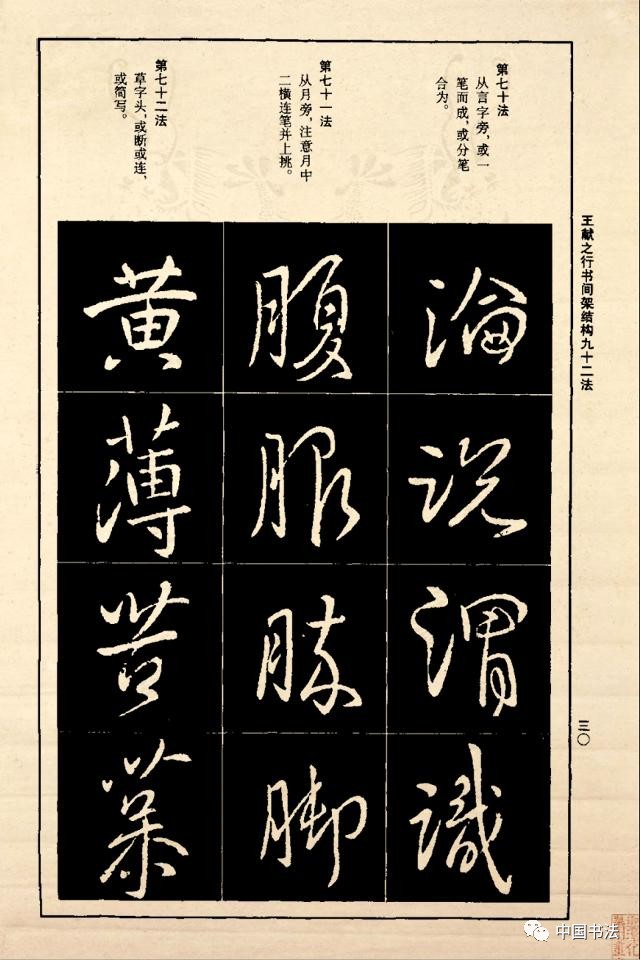 第七十法
从言字旁，或一
笔而成，或分笔
合为。
第七十一法
从月旁，注意月中
二横连笔并上挑。
第七十二法
草字头，或断或连，
或简写。
王献之行书间架结构九十二法
三〇
論
説
謂
識
腹
服
脉
脚
黄
薄
苦
中国书法